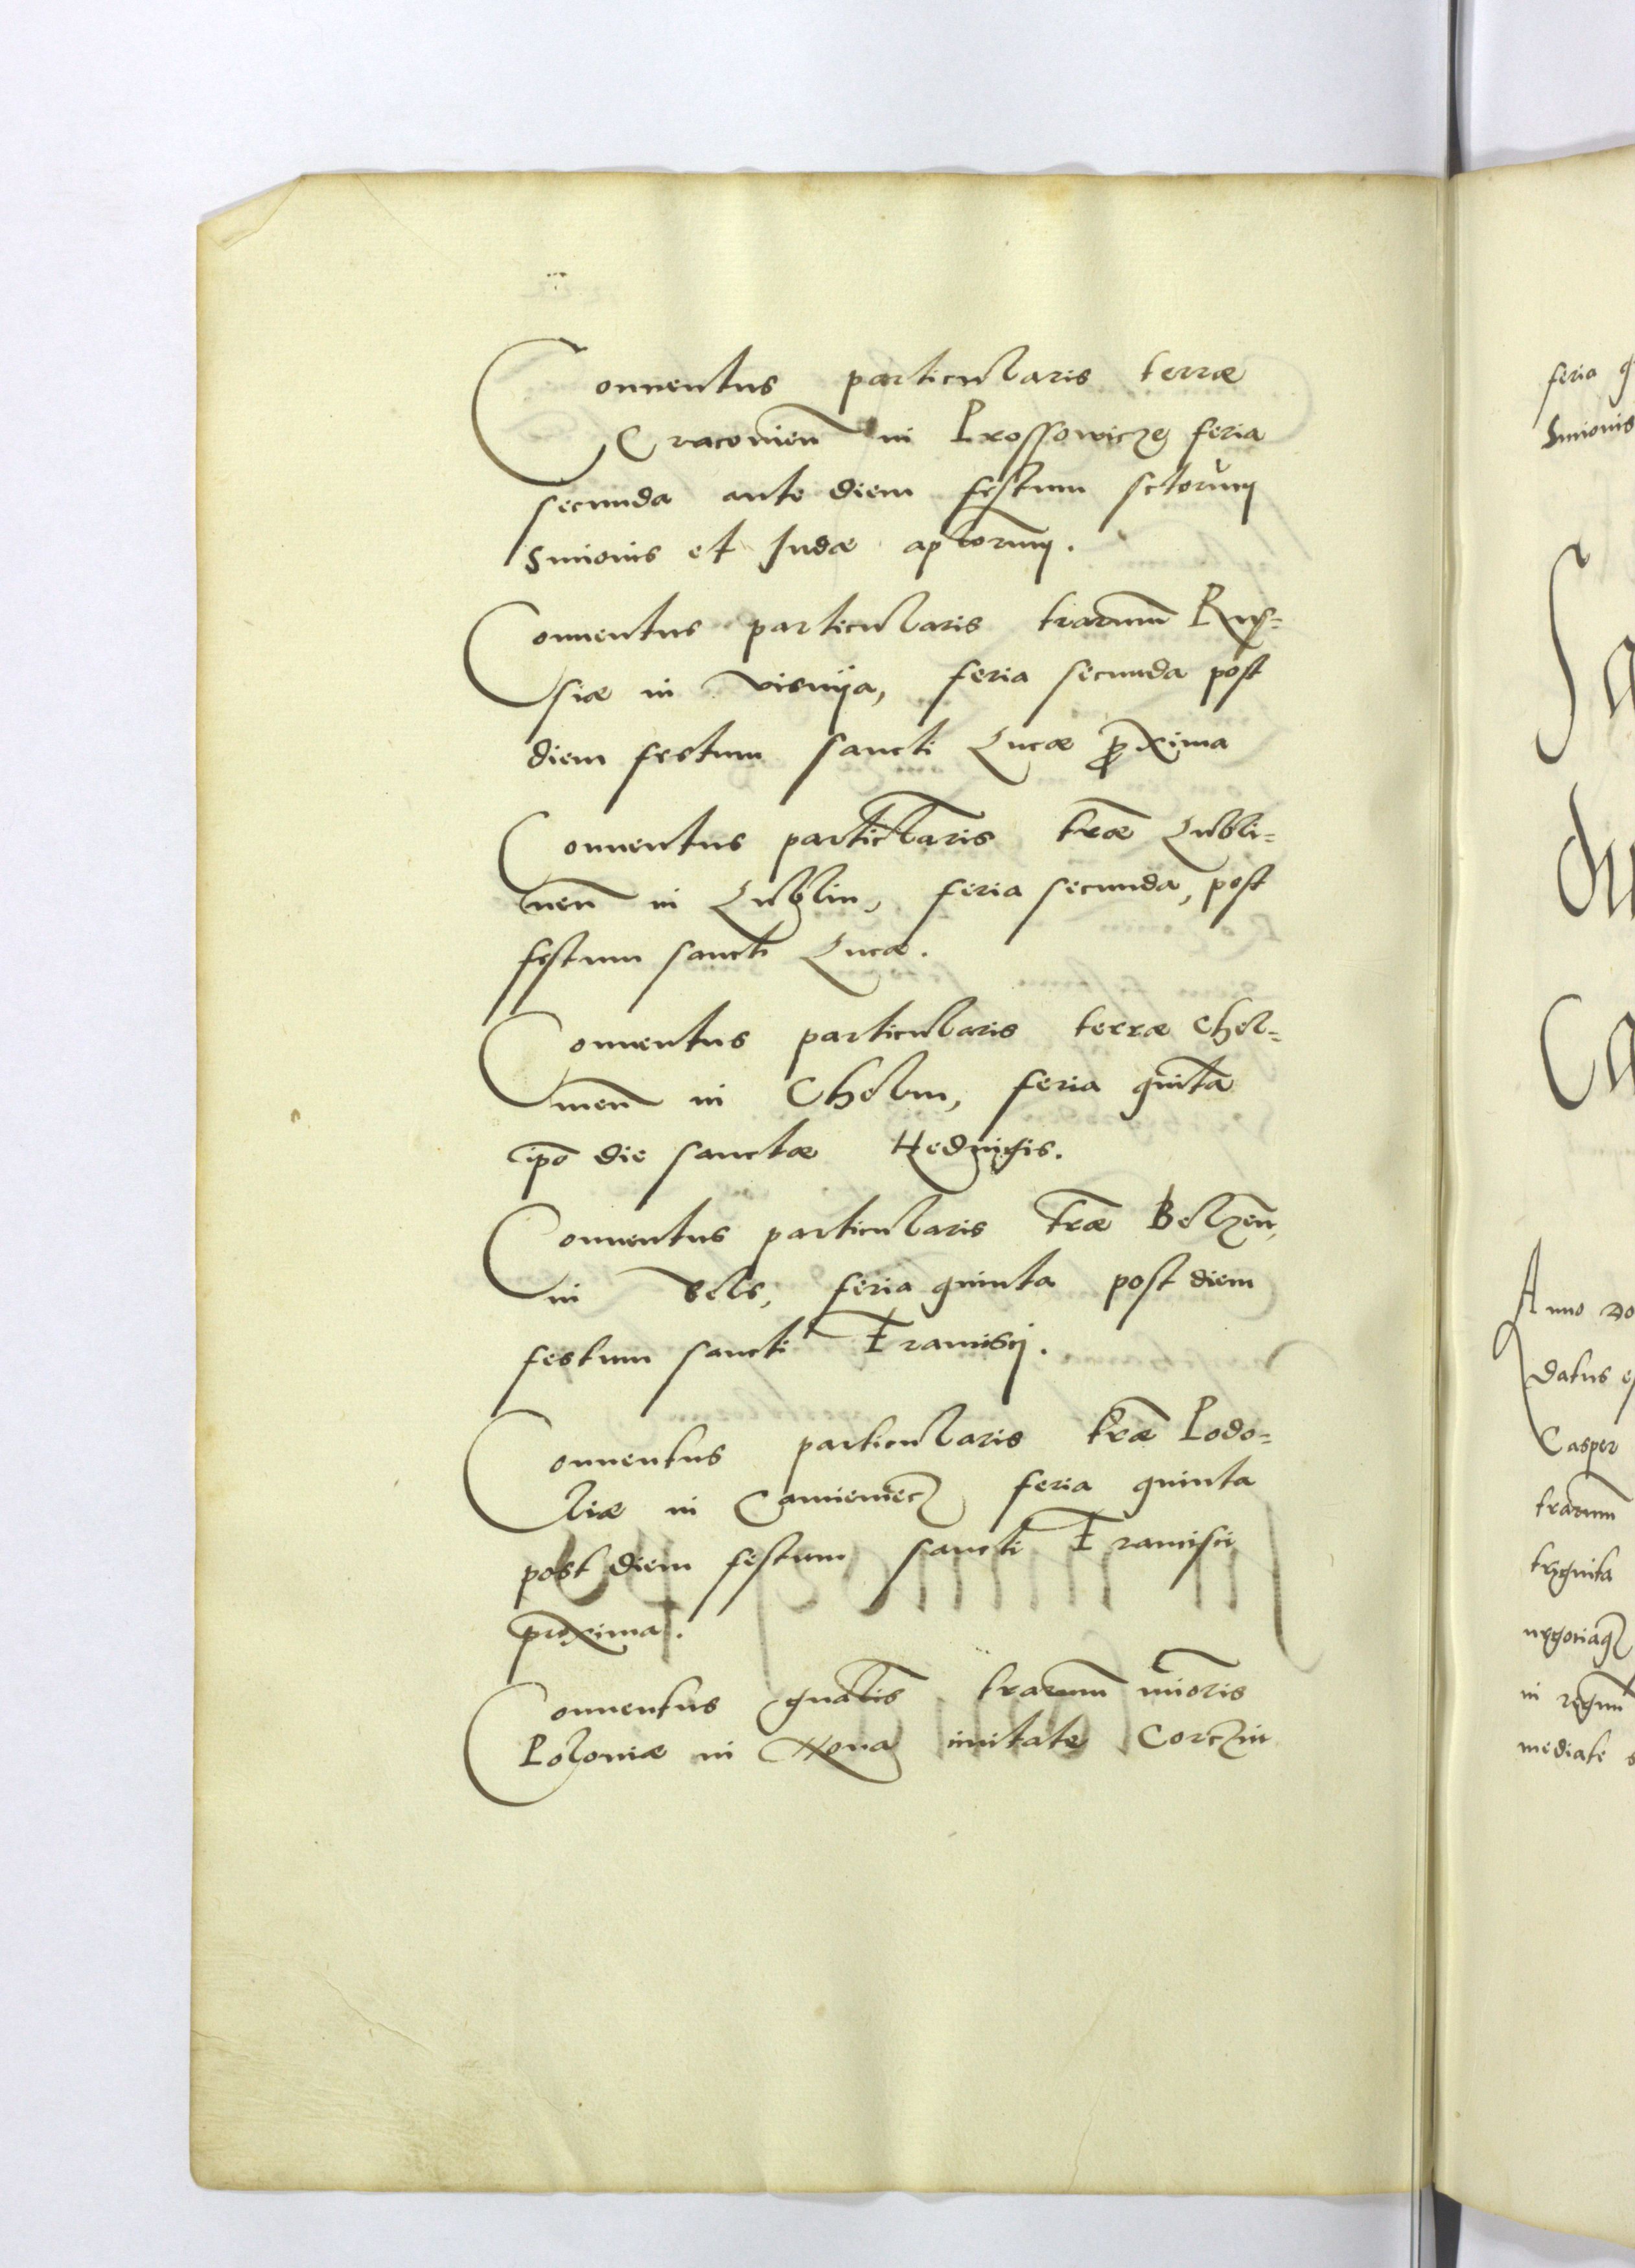 Conuentus particularis terræ
Cracouien̄ in Prossowicze feria
secunda ante diem festum sctorum
Simonis et Judæ aplorum.
Conuentus particularis trarum Rus=
siæ in Visnija, feria secunda post
diem festum sancti Lucæ proxima
Conuentus particlaris træ Lubli=
nen̄ in Lublin, feria secunda, post
festum sancti Lucæ.
Conuentus particularis terræ Chel=
men̄ in Chelm, feria quinta
ipo die sanctæ Hedwigis.
Conuentus particularis træ Belzen̄,
in Bels, feria quinta post diem
festum sancti Francisci.
Conuentus particularis træ Podo=
liæ in Camieniecz feria quinta
post diem festum sancti Francisci
proxima.
Conuentus gnalis trarum mioris
Poloniæ in Noua ciuitate Corczin
feria
Simonis
Sa
du
Ca
Anno
datus
Casper
trarum
in regnum
mediate